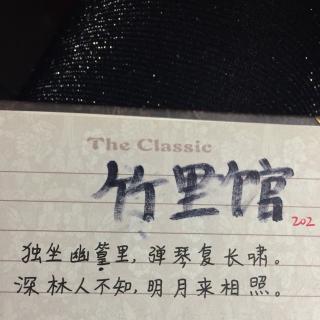 The Classic
竹里馆
202
独坐幽篁里,弹琴复长啸。
深林人不知,明月来相照。